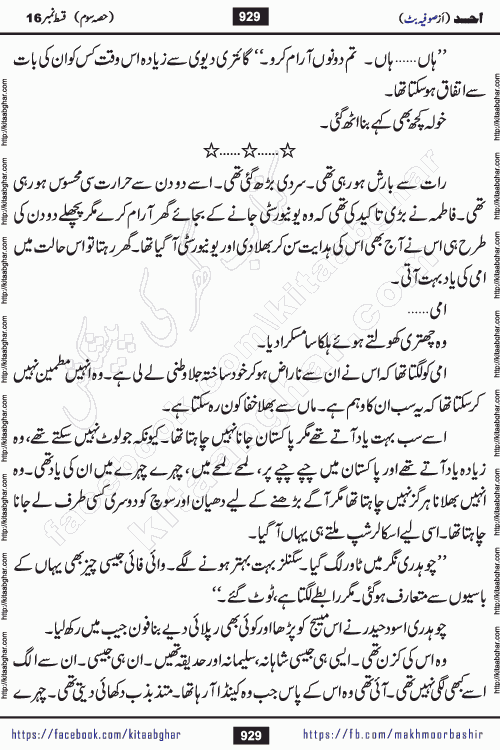 احمد (از صوفیہ بٹ)
929
(حصہ سوم) قسط نمبر 16
’’ہاں...... ہاں۔ تم دونوں آرام کرو۔‘‘ گائتری دیوی سے زیادہ اس وقت کس کو ان کی بات
سے اتفاق ہو سکتا تھا۔
خولہ کچھ بھی کہے بنا اٹھ گئی۔
☆......☆......☆
رات سے بارش ہو رہی تھی۔ سردی بڑھ گئی تھی۔ اسے دو دن سے حرارت سی محسوس ہو رہی
تھی۔ فاطمہ نے بڑی تاکید کی تھی کہ وہ یونیورسٹی جانے کے بجائے گھر آرام کرے مگر پچھلے دو دن کی
طرح ہی اس نے آج بھی اس کی ہدایت سن کر بھلا دی اور یونیورسٹی آ گیا تھا۔ گھر رہتا تو اس حالت میں
امی کی یاد بہت آتی۔
امی......
وہ چھتری کھولتے ہوئے ہلکا سا مسکرا دیا۔
امی کو لگتا تھا کہ اس نے ان سے ناراض ہو کر خود ساختہ جلا وطنی لے لی ہے۔ وہ انہیں مطمئن نہیں
کر سکتا تھا کہ یہ سب ان کا وہم ہے۔ ماں سے بھلا خفا کون رہ سکتا ہے۔
اسے سب بہت یاد آتے تھے مگر پاکستان جانا نہیں چاہتا تھا۔ کیونکہ جو لوٹ نہیں سکتے تھے، وہ
زیادہ یاد آتے تھے اور پاکستان میں چپے چپے پر، لمحے لمحے میں، چہرے چہرے میں ان کی یاد تھی۔ وہ
انہیں بھلانا ہرگز نہیں چاہتا تھا مگر آگے بڑھنے کے لیے دھیان اور سوچ کو دوسری کسی طرف لے جانا
چاہتا تھا۔ اسی لیے اسکالر شپ ملتے ہی یہاں آ گیا۔
’’چوہدری نگر میں ٹاور لگ گیا۔ سگنلز بہت بہتر ہونے لگے۔ وائی فائی جیسی چیز بھی یہاں کے
باسیوں سے متعارف ہو گئی۔ مگر رابطے لگتا ہے، ٹوٹ گئے۔‘‘
چوہدری اسود حیدر نے اس میسج کو پڑھا اور کوئی بھی رپلائی دیے بنا فون جیب میں رکھ لیا۔
وہ اس کی کزن تھی۔ ایسی ہی جیسی شاہانہ، سلیمانہ اور حدیقہ تھیں۔ ان ہی جیسی۔ ان سے الگ
اسے کبھی لگی نہیں تھی۔ آئی تھی وہ اس کے پاس جب وہ کینڈا آ رہا تھا۔ متذبذب دکھائی دیتی تھی۔ چہرے
https://facebook.com/kitaabghar
929
https://fb.com/makhmoorbashir
http://kitaabghar.com